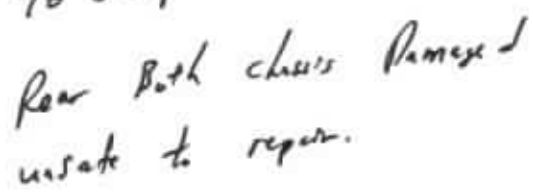 Rear Both chassis Damaged
unsafe to repair.